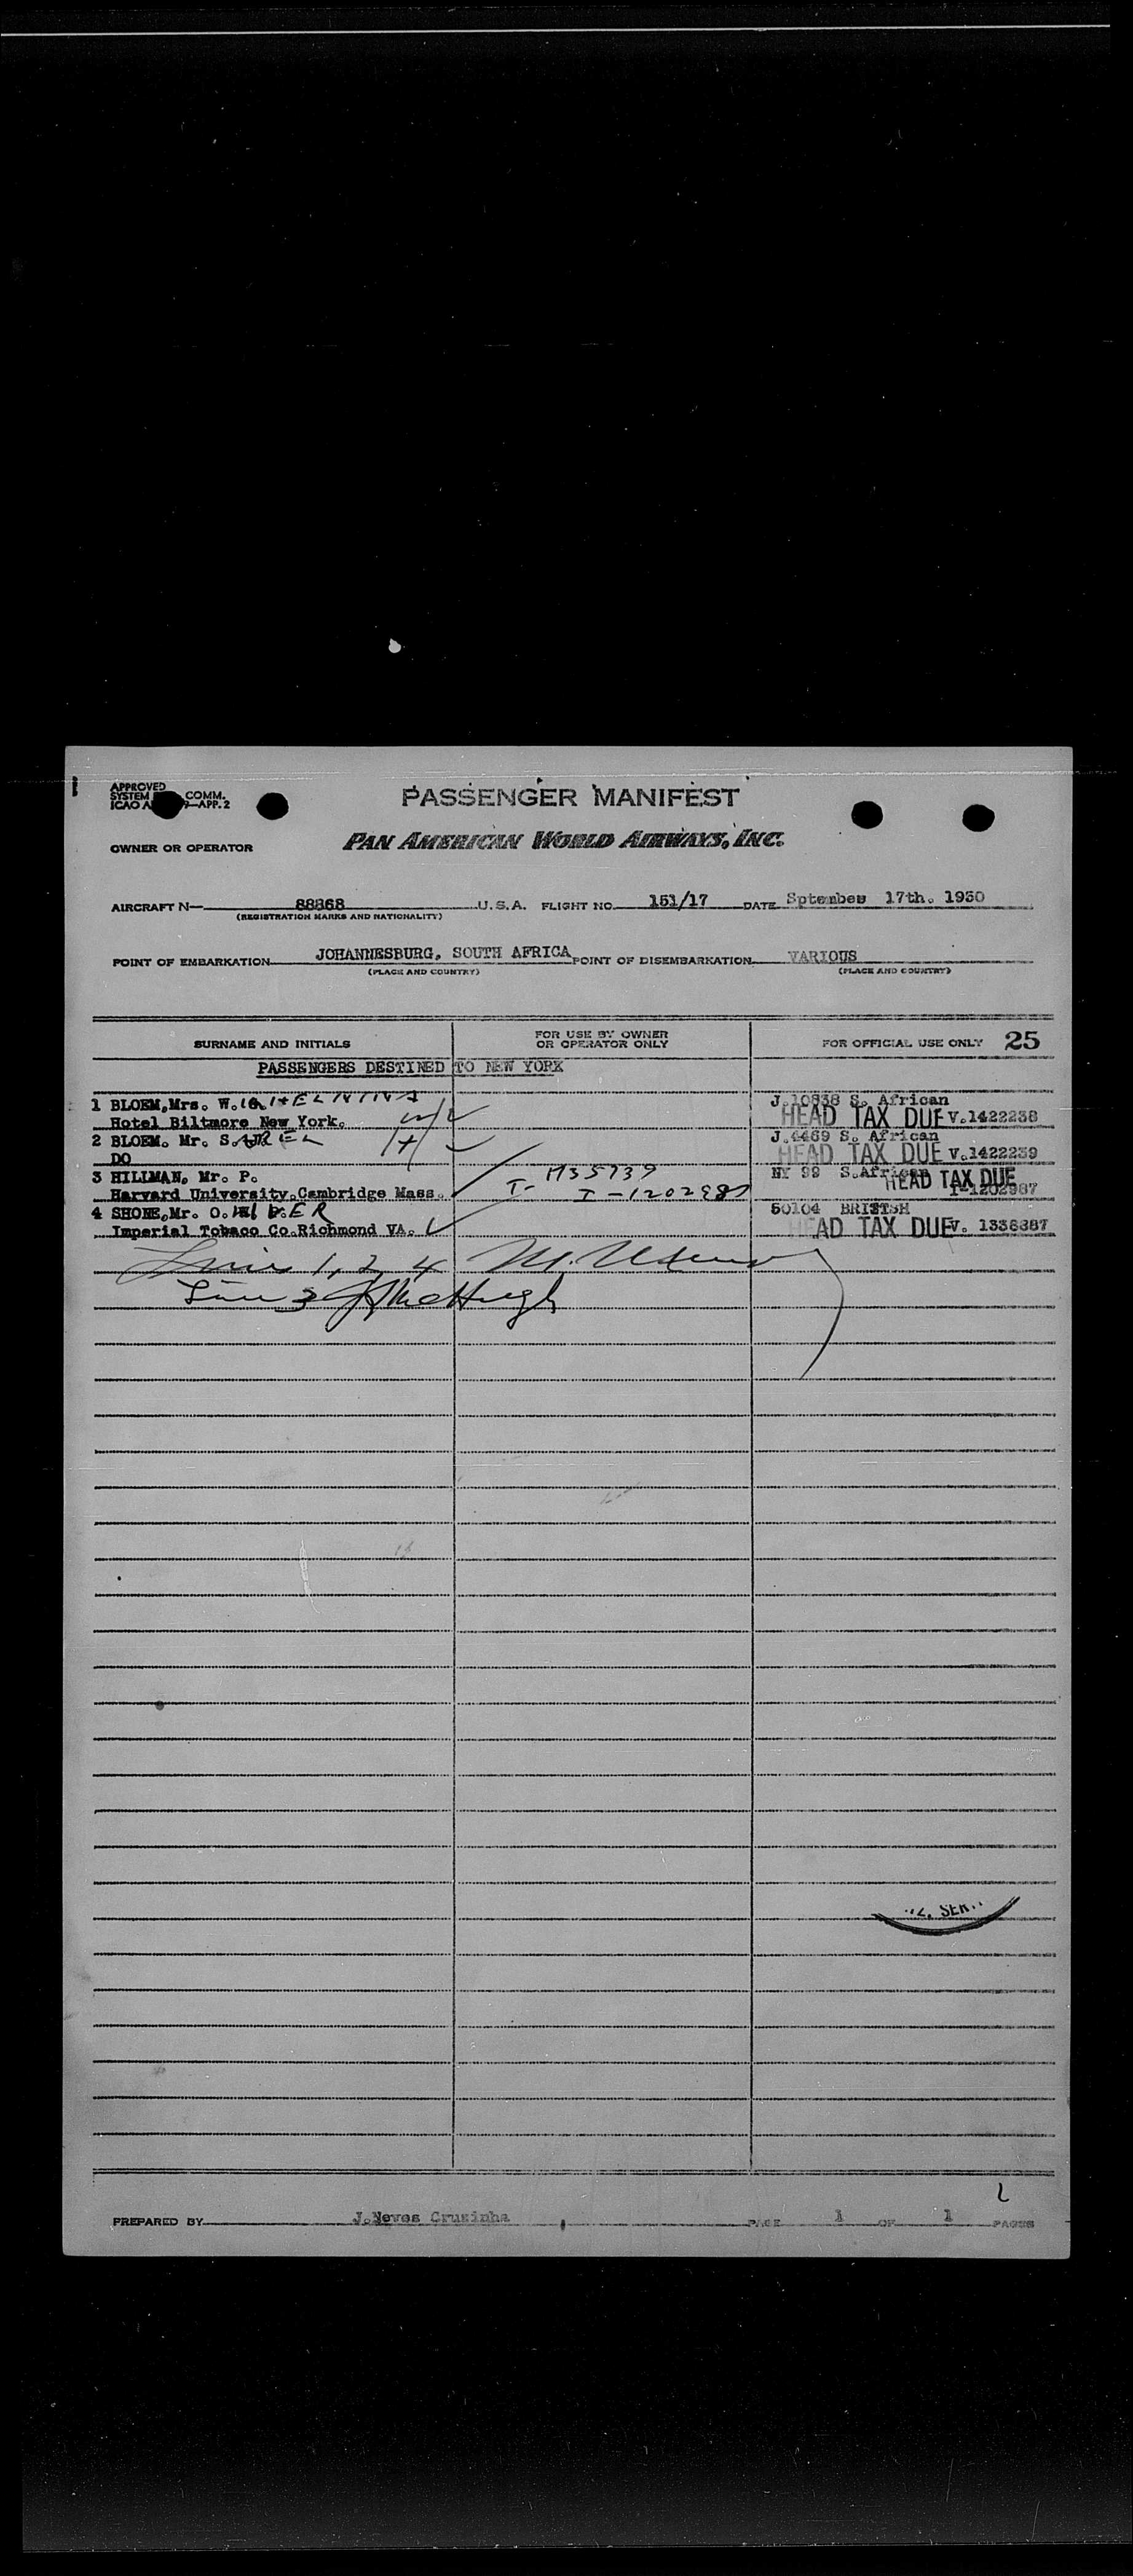 APPROVED
SYSTEM COMM.
ICAO A 9—APP. 2
PASSENGER MANIFEST
OWNER OR OPERATOR PAN AMERICAN WORLD AIRWAYS, INC.
AIRCRAFT N— 88868 U.S.A. FLIGHT NO. 151/17 DATE Sptember 17th. 1950
(REGISTRATION MARKS AND NATIONALITY)
POINT OF EMBARKATION JOHANNESBURG, SOUTH AFRICA POINT OF DISEMBARKATION VARIOUS
(PLACE AND COUNTRY) (PLACE AND COUNTRY)
SURNAME AND INITIALS FOR USE BY OWNER OR OPERATOR ONLY FOR OFFICIAL USE ONLY 25
PASSENGERS DESTINED TO NEW YORK
1 BLOEM,Mrs. W. J.10838 S. African
Hotel Biltmore New York. HEAD TAX DUE V.1422238
2 BLOEM. Mr. S. J.4489 S. African
DO HEAD TAX DUE V.1422239
3 HILLMAN, Mr. P. M35739 NY 99 S.African
Harvard University.Cambridge Mass. I- I-1202987 HEAD TAX DUE I-1202987
4 SHONE,Mr. O. 50104 BRITISH
Imperial Tobaco Co.Richmond VA. HEAD TAX DUE V. 1336387
Lines 1, 2, 4 M.
Line 3 McHugh
SER
PREPARED BY J.Neves Crusinha PAGE 1 OF 1 PAGES